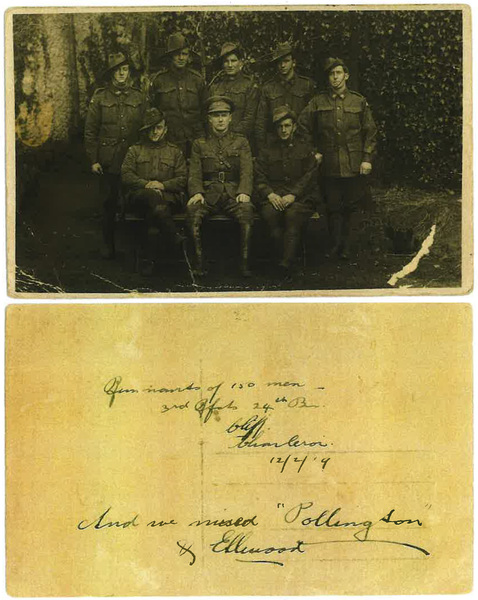 Remnants of 150 men -
3rd Rfts 24th Bn.
Cliff.
Charleroi.
12/2/19
And we missed "Pollington"
& Ellwood